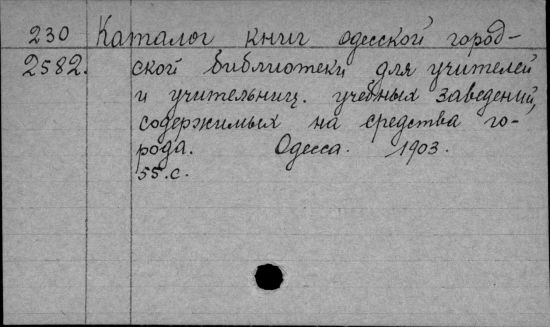 230 Каталог книг одесской город-
2582. ской библиотеки для учителей
и учительниц. учебных заведений,
содержимых на средства го-
рода. Одесса. 1903.
55 с.